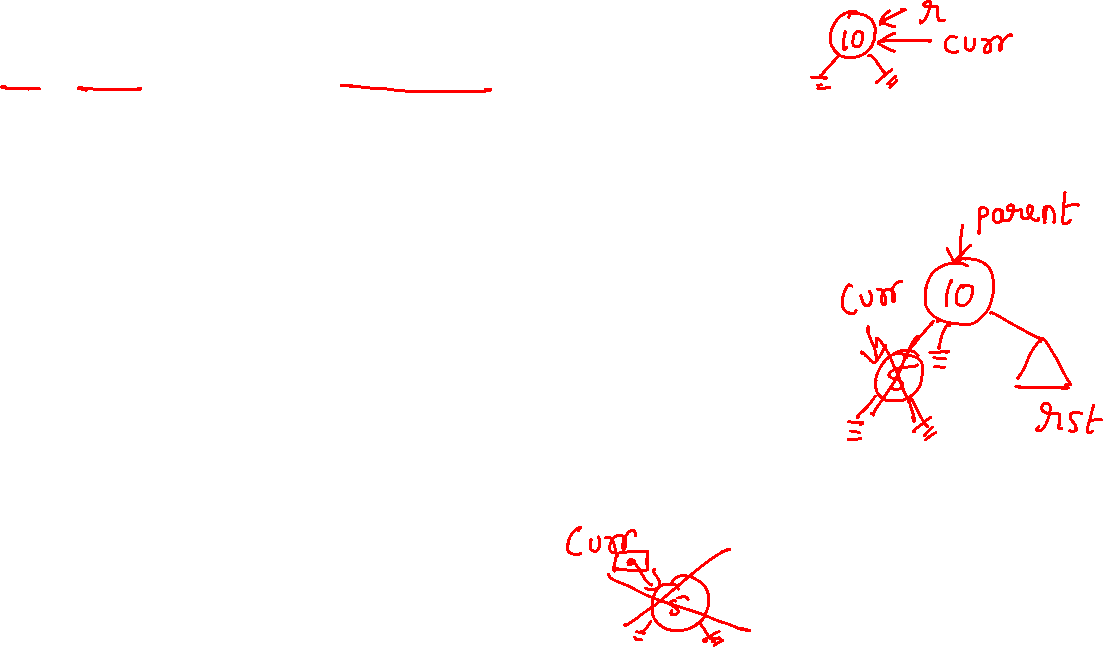 r
10
curr
parent
curr
10
rst
curr
5